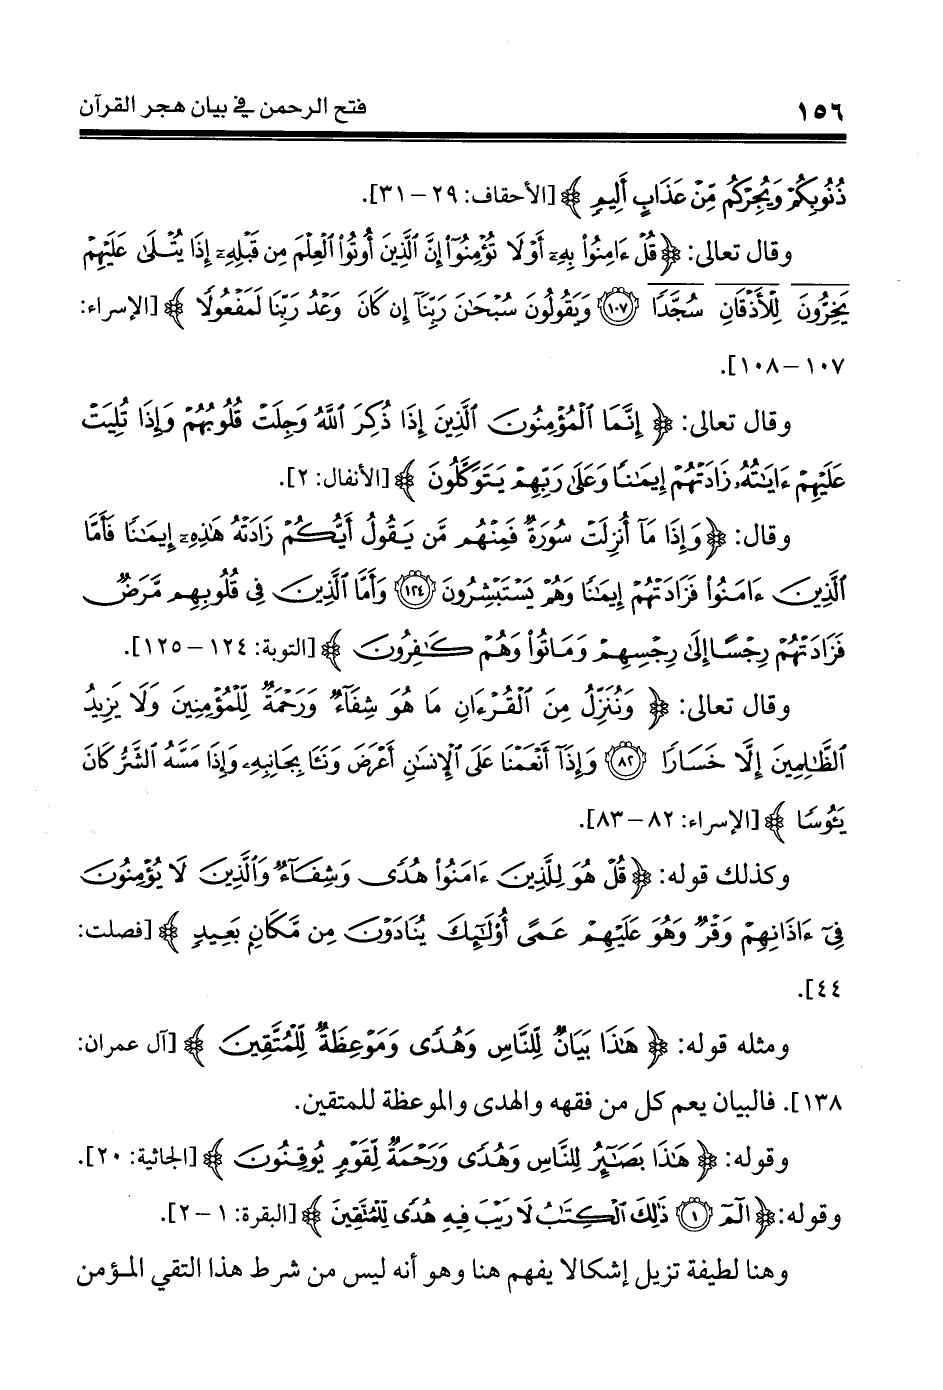 ١٥٦ فتح الرحمن في بيان هجر القرآن
ذُنُوبِكُمْ وَيُجِرْكُم مِّنْ عَذَابٍ أَلِيمٍ ﴾ [الأحقاف: ٢٩ – ٣١].
وقال تعالى: ﴿ قُلْ ءَامِنُوا۟ بِهِۦٓ أَوْ لَا تُؤْمِنُوٓا۟ إِنَّ ٱلَّذِينَ أُوتُوا۟ ٱلْعِلْمَ مِن قَبْلِهِۦٓ إِذَا يُتْلَىٰ عَلَيْهِمْ
يَخِرُّونَ لِلْأَذْقَانِ سُجَّدًا ۝١٠٧ وَيَقُولُونَ سُبْحَٰنَ رَبِّنَآ إِن كَانَ وَعْدُ رَبِّنَا لَمَفْعُولًا ﴾ [الإسراء:
١٠٧ – ١٠٨].
وقال تعالى: ﴿ إِنَّمَا ٱلْمُؤْمِنُونَ ٱلَّذِينَ إِذَا ذُكِرَ ٱللَّهُ وَجِلَتْ قُلُوبُهُمْ وَإِذَا تُلِيَتْ
عَلَيْهِمْ ءَايَٰتُهُۥ زَادَتْهُمْ إِيمَٰنًا وَعَلَىٰ رَبِّهِمْ يَتَوَكَّلُونَ ﴾ [الأنفال: ٢].
وقال: ﴿ وَإِذَا مَآ أُنزِلَتْ سُورَةٌ فَمِنْهُم مَّن يَقُولُ أَيُّكُمْ زَادَتْهُ هَٰذِهِۦٓ إِيمَٰنًا فَأَمَّا
ٱلَّذِينَ ءَامَنُوا۟ فَزَادَتْهُمْ إِيمَٰنًا وَهُمْ يَسْتَبْشِرُونَ ۝١٢٤ وَأَمَّا ٱلَّذِينَ فِى قُلُوبِهِم مَّرَضٌ
فَزَادَتْهُمْ رِجْسًا إِلَىٰ رِجْسِهِمْ وَمَاتُوا۟ وَهُمْ كَٰفِرُونَ ﴾ [التوبة: ١٢٤ – ١٢٥].
وقال تعالى: ﴿ وَنُنَزِّلُ مِنَ ٱلْقُرْءَانِ مَا هُوَ شِفَآءٌ وَرَحْمَةٌ لِّلْمُؤْمِنِينَ وَلَا يَزِيدُ
ٱلظَّٰلِمِينَ إِلَّا خَسَارًا ۝٨٢ وَإِذَآ أَنْعَمْنَا عَلَى ٱلْإِنسَٰنِ أَعْرَضَ وَنَـَٔا بِجَانِبِهِۦ وَإِذَا مَسَّهُ ٱلشَّرُّ كَانَ
يَـُٔوسًا ﴾ [الإسراء: ٨٢ – ٨٣].
وكذلك قوله: ﴿ قُلْ هُوَ لِلَّذِينَ ءَامَنُوا۟ هُدًى وَشِفَآءٌ وَٱلَّذِينَ لَا يُؤْمِنُونَ
فِىٓ ءَاذَانِهِمْ وَقْرٌ وَهُوَ عَلَيْهِمْ عَمًى أُو۟لَٰٓئِكَ يُنَادَوْنَ مِن مَّكَانٍ بَعِيدٍ ﴾ [فصلت:
٤٤].
ومثله قوله: ﴿ هَٰذَا بَيَانٌ لِّلنَّاسِ وَهُدًى وَمَوْعِظَةٌ لِّلْمُتَّقِينَ ﴾ [آل عمران:
١٣٨]. فالبيان يعم كل من فقهه والهدى والموعظة للمتقين.
وقوله: ﴿ هَٰذَا بَصَٰٓئِرُ لِلنَّاسِ وَهُدًى وَرَحْمَةٌ لِّقَوْمٍ يُوقِنُونَ ﴾ [الجاثية: ٢٠].
وقوله: ﴿ الٓمٓ ۝١ ذَٰلِكَ ٱلْكِتَٰبُ لَا رَيْبَ فِيهِ هُدًى لِّلْمُتَّقِينَ ﴾ [البقرة: ١ – ٢].
وهنا لطيفة تزيل إشكالا يفهم هنا وهو أنه ليس من شرط هذا التقي المؤمن